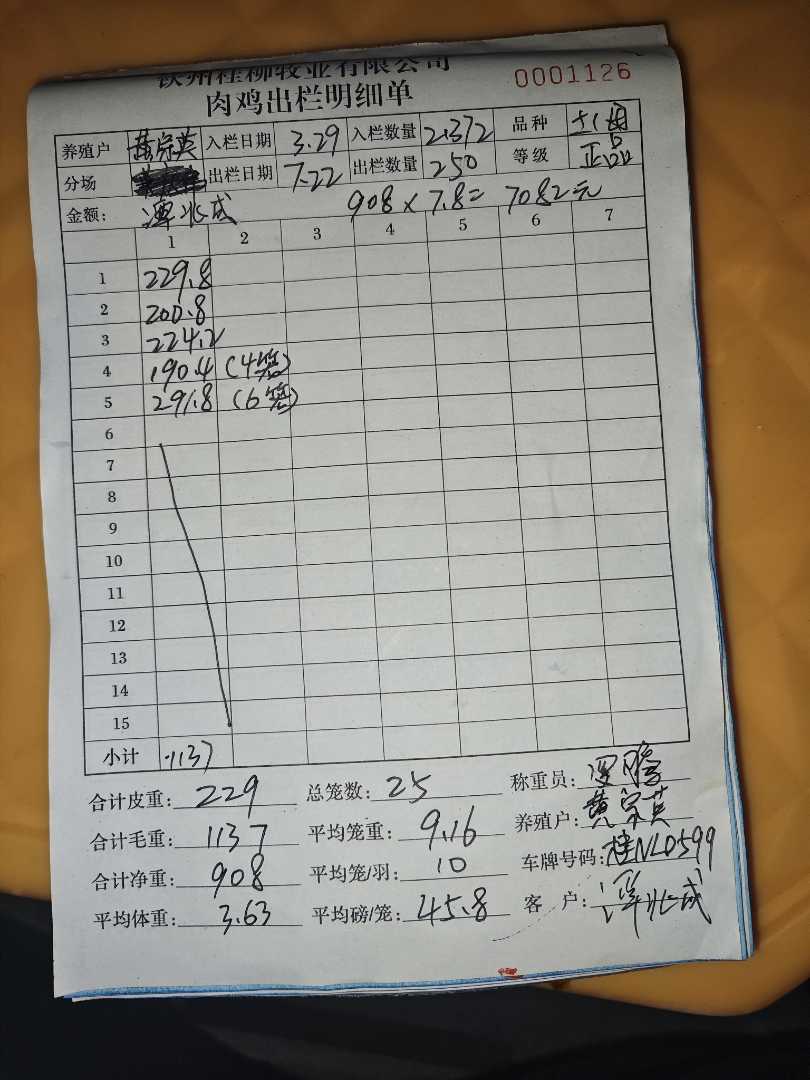 钦州桂柳牧业有限公司
0001126
肉鸡出栏明细单
养殖户 黄宗英 入栏日期 3.29 入栏数量 2372 品种
分场 出栏日期 7.22 出栏数量 250 等级 正品
金额: 908 x 7.8= 7082元
1 2 3 4 5 6 7
1 229.8
2 200.8
3 224.2
4 190.4 (4笼)
5 291.8 (6笼)
6
7
8
9
10
11
12
13
14
15
小计 1137
合计皮重: 229 总笼数: 25 称重员:
合计毛重: 1137 平均笼重: 9.16 养殖户: 黄宗英
合计净重: 908 平均笼/羽: 10 车牌号码: 桂NLD599
平均体重: 3.63 平均磅/笼: 45.8 客户: